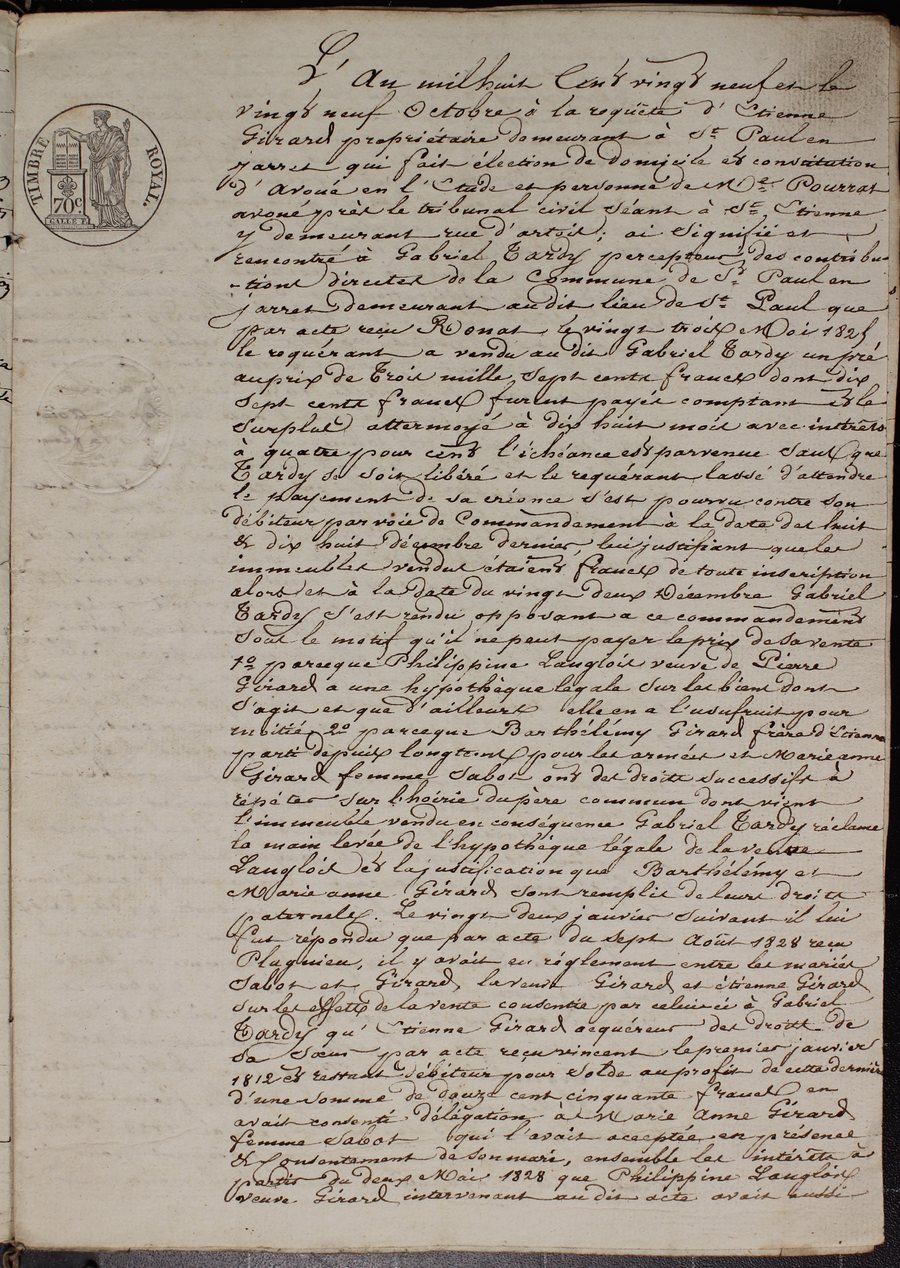 TIMBRE ROYAL.
70c
L'An mil huit Cent vingt neuf et le
vingt neuf Octobre à la requête d'Etienne
Girard propriétaire demeurant à St Paul en
jarret qui fait élection de domicile et constitution
d'Avoué en l'Etude et personne de Me Pourrat
avoué près le tribunal civil séant à St Etienne
y demeurant rue d'artois ; ai signifié et
rencontré à Gabriel Tardy percepteur des contribu-
-tions directes de la Commune de St Paul en
jarret demeurant au dit lieu de St Paul que
par acte reçu Ronat le vingt trois Mai 182
le requérant a vendu au dit Gabriel Tardy un pré
au prix de Trois mille Sept cents francs dont dix
Sept cents francs furent payés comptant et le
Surplus attermoyé à dix huit mois avec intérêts
à quatre pour cent l'échéance est parvenue Sans que
Tardy se soit libéré et le requérant lassé d'attendre
le payement de sa créance s'est pourvu contre son
débiteur par voie de Commandement à la date des huit
& dix huit décembre dernier, lui justifiant que les
immeubles vendus étaient francs de toute inscription
alors et à la date du vingt deux Décembre Gabriel
Tardy s'est rendu opposant a ce commandement
Sous le motif qu'il ne peut payer le prix de sa vente
1o parceque Philippine Langlois veuve de Pierre
Girard a une hypothèque légale sur les biens dont
s'agit et que d'ailleurs elle en a l'usufruit pour
moitié 2o parceque Barthélémy Girard frère d'Etienne
parti depuis longtems pour les armées et Marie anne
Girard femme Sabot ont des droits successifs à
répéter sur l'hoirie du père commun dont vient
l'immeuble vendu en conséquence Gabriel Tardy réclame
la main levée de l'hypothèque légale de la veuve
Langlois et la justification que Barthélémy et
Marie anne Girard sont remplis de leurs droits
paternels. Le vingt deux janvier suivant il lui
fut répondu que par acte du sept Août 1828 reçu
Plagnieu, il y avait eu réglement entre les mariés
Sabot et Girard, la veuve Girard et étienne Girard
sur les effets de la vente consentie par celui ci à Gabriel
Tardy qu'Etienne Girard acquéreur des droits de
Sa Sœur par acte reçu vincent le premier janvier
1812 et restant débiteur pour solde au profit de cette dernière
d'une somme de douze cent cinquante francs en
avait consenti délégation à Marie Anne Girard
femme Sabot qui l'avait acceptée en présence
& Consentement de son mari, ensemble les intérêts à
partir du deux Mai 1828 que Philippine Langlois
veuve Girard intervenant au dit acte avait aussi